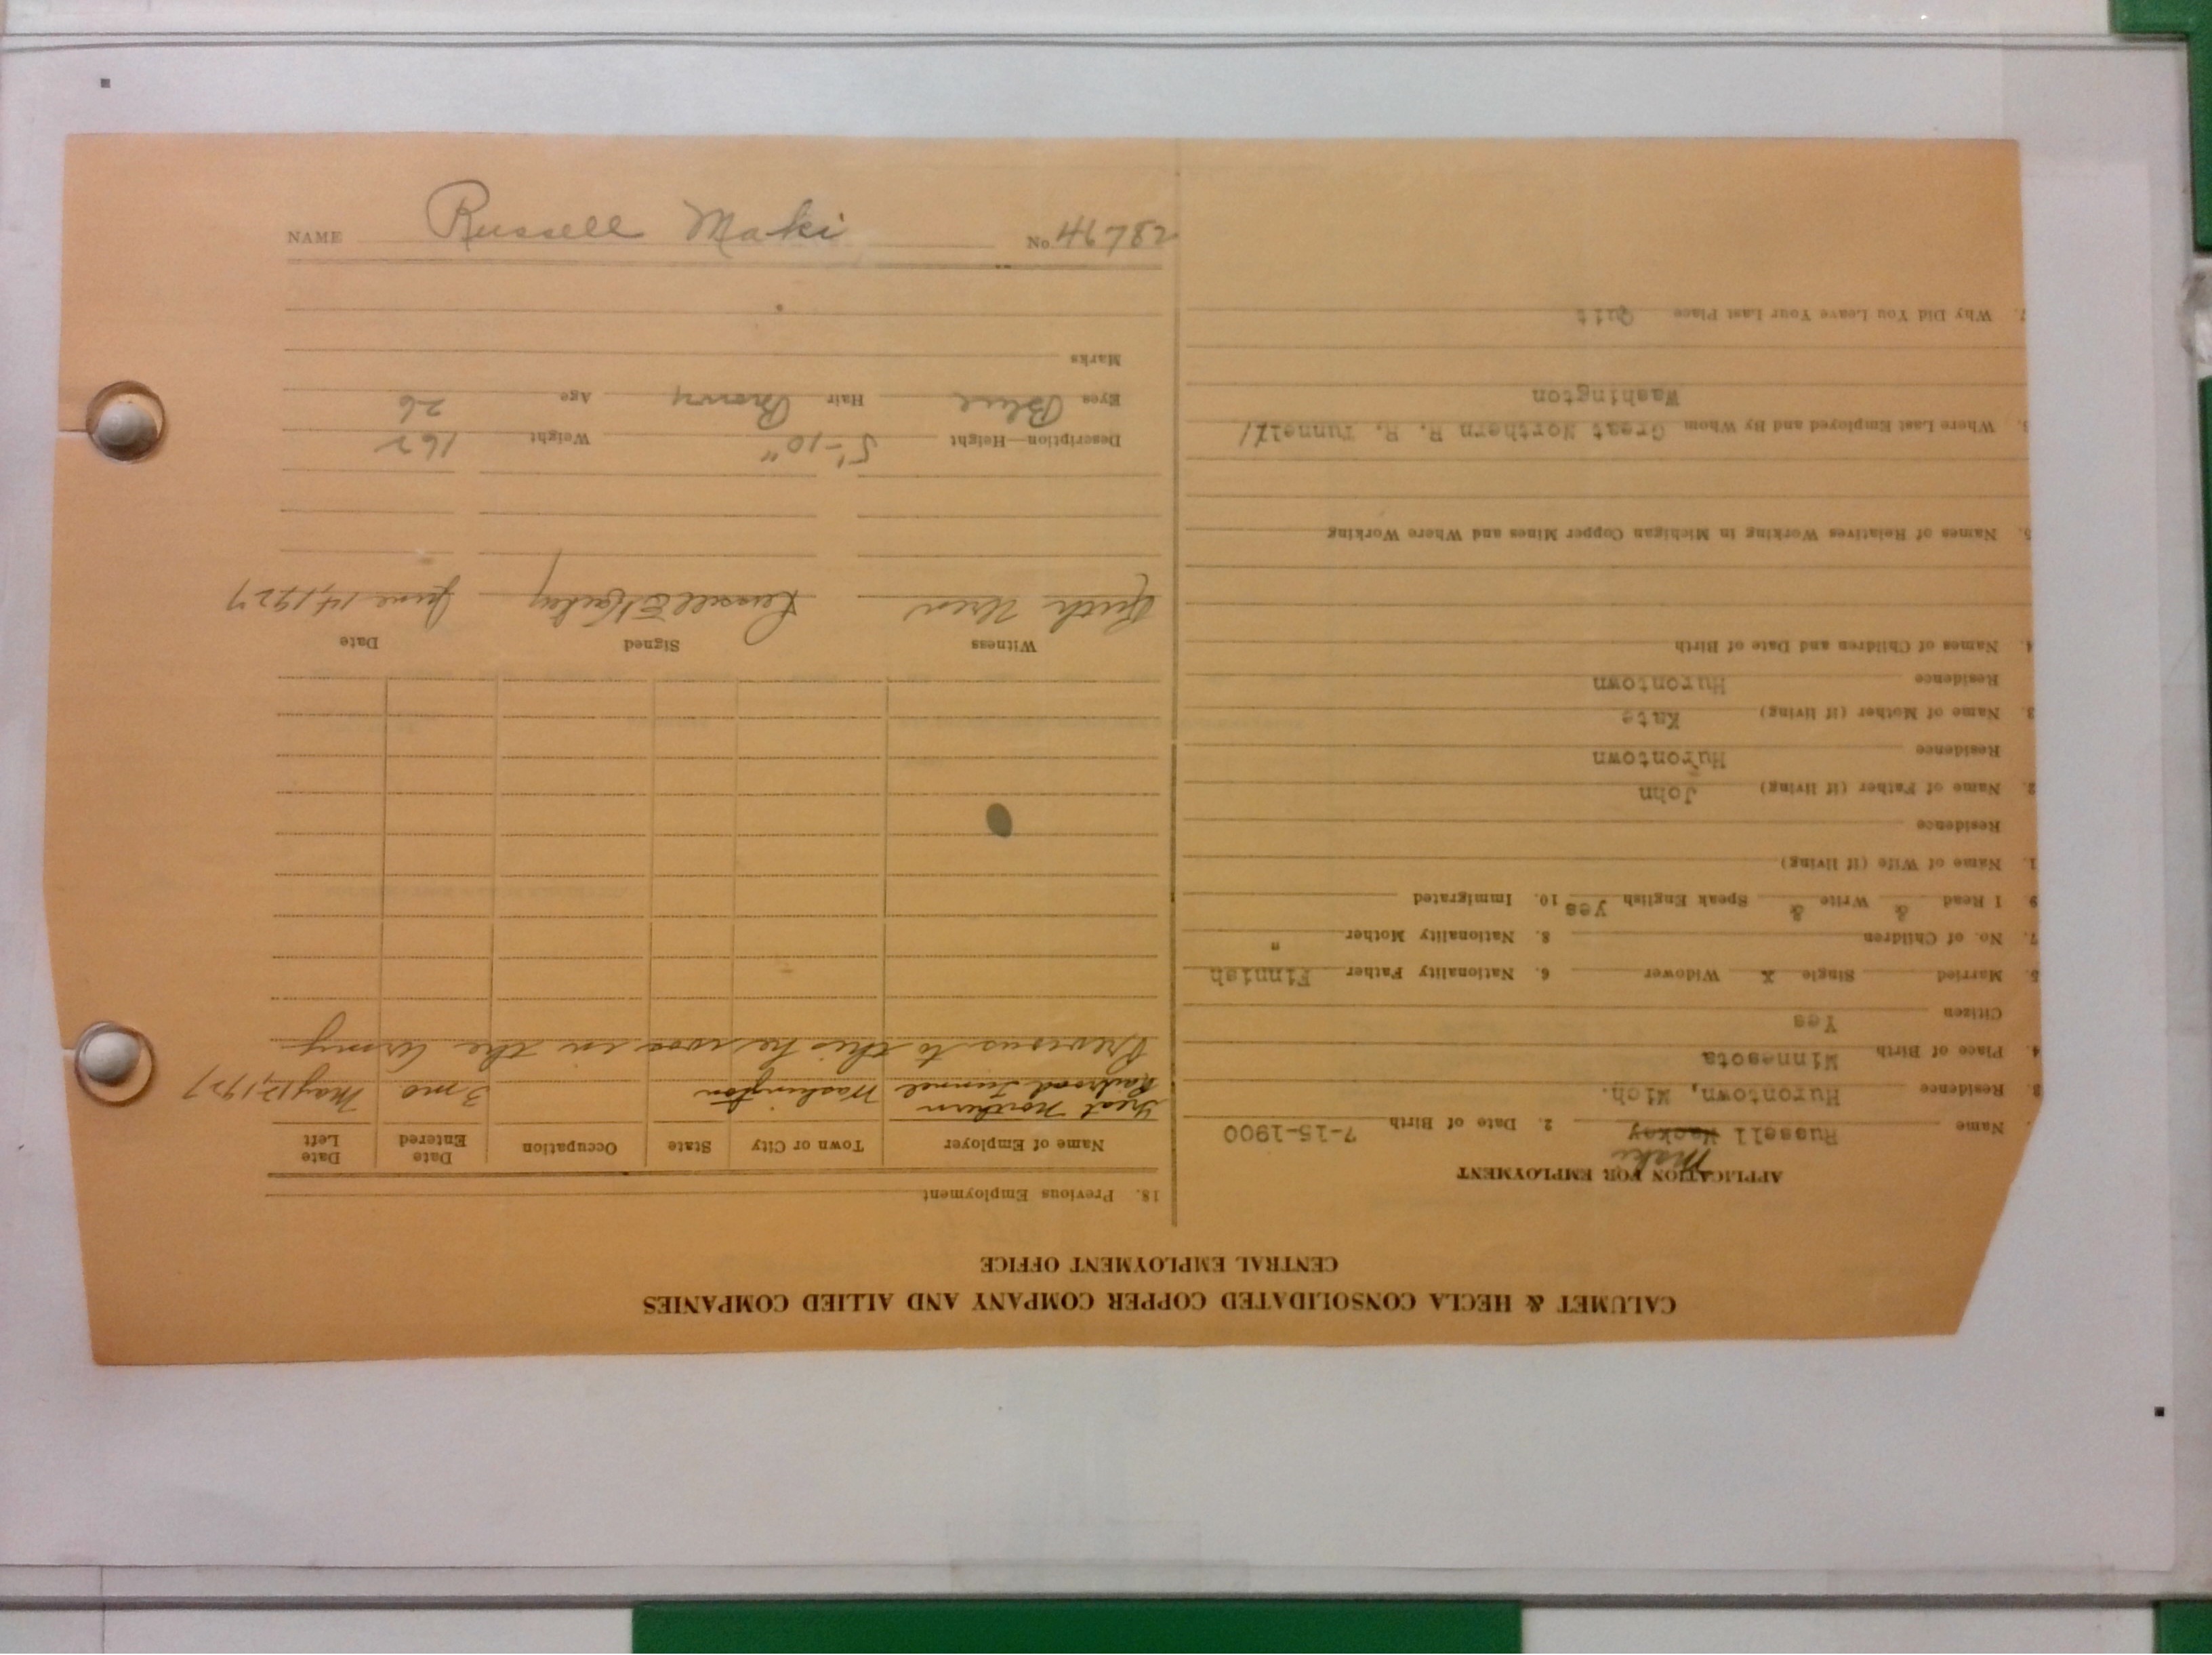 NAME Russell Maki No. 46782
CALUMET & HECLA CONSOLIDATED COPPER COMPANY AND ALLIED COMPANIES
CENTRAL EMPLOYMENT OFFICE
APPLICATION FOR EMPLOYMENT
Maki
Name Russell Mackey 2. Date of Birth 7-15-1900
3. Residence Hurontown, Mich.
4. Place of Birth Minnesota
Citizen Yes
5. Married Single X Widower 6. Nationality Father Finnish
7. No. of Children 8. Nationality Mother "
9 I Read & Write & Speak English yes 10. Immigrated
1. Name of Wife (if living)
Residence
2. Name of Father (if living) John
Residence Hurontown
3. Name of Mother (if living) Kate
Residence Hurontown
4. Names of Children and Date of Birth
5. Names of Relatives Working in Michigan Copper Mines and Where Working
6. Where Last Employed and By Whom Great Northern R. R. Tunnell/
Washington
7. Why Did You Leave Your Last Place Quit
18. Previous Employment
Name of Employer Town or City State Occupation Date Entered Date Left
Great Northern
Railroad Tunnel Washington 3 mo May 12, 1927
Previous to this he was in the Army
Witness Signed Date
Ruth Uren Russell E Mackey June 14, 1927
Description—Height 5'-10" Weight 162
Eyes Blue Hair Brown Age 26
Marks